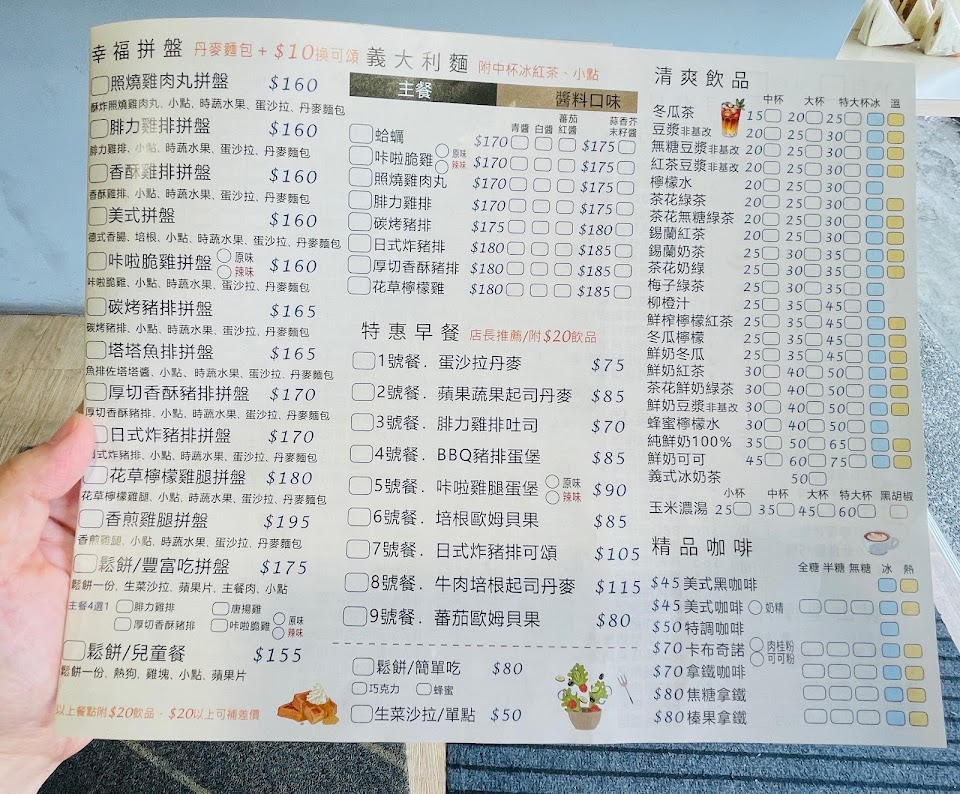 幸福拼盤 丹麥麵包 + $10換可頌
照燒雞肉丸拼盤 $160
酥炸照燒雞肉丸、小點、時蔬水果、蛋沙拉、丹麥麵包
腓力雞排拼盤 $160
腓力雞排、小點、時蔬水果、蛋沙拉、丹麥麵包
香酥雞排拼盤 $160
香酥雞排、小點、時蔬水果、蛋沙拉、丹麥麵包
美式拼盤 $160
德式香腸、培根、小點、時蔬水果、蛋沙拉、丹麥麵包
咔啦脆雞拼盤 原味 辣味 $160
咔啦脆雞、小點、時蔬水果、蛋沙拉、丹麥麵包
碳烤豬排拼盤 $165
碳烤豬排、小點、時蔬水果、蛋沙拉、丹麥麵包
塔塔魚排拼盤 $165
魚排佐塔塔醬、小點、時蔬水果、蛋沙拉、丹麥麵包
厚切香酥豬排拼盤 $170
厚切香酥豬排、小點、時蔬水果、蛋沙拉、丹麥麵包
日式炸豬排拼盤 $170
日式炸豬排、小點、時蔬水果、蛋沙拉、丹麥麵包
花草檸檬雞腿拼盤 $180
花草檸檬雞腿、小點、時蔬水果、蛋沙拉、丹麥麵包
香煎雞腿拼盤 $195
香煎雞腿、小點、時蔬水果、蛋沙拉、丹麥麵包
鬆餅/豐富吃拼盤 $175
鬆餅一份、生菜沙拉、蘋果片、主餐肉、小點
主餐4選1 腓力雞排 唐揚雞
厚切香酥豬排 咔啦脆雞 原味 辣味
鬆餅/兒童餐 $155
鬆餅一份、熱狗、雞塊、小點、蘋果片
以上餐點附$20飲品，$20以上可補差價
義大利麵 附中杯冰紅茶、小點
主餐 醬料口味
青醬 白醬 蕃茄紅醬 蒜香芥末籽醬
蛤蠣 $170 $175
咔啦脆雞 原味 辣味 $170 $175
照燒雞肉丸 $170 $175
腓力雞排 $170 $175
碳烤豬排 $175 $180
日式炸豬排 $180 $185
厚切香酥豬排 $180 $185
花草檸檬雞 $180 $185
特惠早餐 店長推薦/附$20飲品
1號餐. 蛋沙拉丹麥 $75
2號餐. 蘋果蔬果起司丹麥 $85
3號餐. 腓力雞排吐司 $70
4號餐. BBQ豬排蛋堡 $85
5號餐. 咔啦雞腿蛋堡 原味 辣味 $90
6號餐. 培根歐姆貝果 $85
7號餐. 日式炸豬排可頌 $105
8號餐. 牛肉培根起司丹麥 $115
9號餐. 蕃茄歐姆貝果 $80
鬆餅/簡單吃 $80
巧克力 蜂蜜
生菜沙拉/單點 $50
清爽飲品
中杯 大杯 特大杯 冰 溫
冬瓜茶 15 20 25
豆漿非基改 20 25 30
無糖豆漿非基改 20 25 30
紅茶豆漿非基改 20 25 30
檸檬水 20 25 30
茶花綠茶 20 25 30
茶花無糖綠茶 20 25 30
錫蘭紅茶 20 25 30
錫蘭奶茶 25 30 35
茶花奶綠 25 30 35
梅子綠茶 25 30 35
柳橙汁 25 35 45
鮮榨檸檬紅茶 25 35 45
冬瓜檸檬 25 35 45
鮮奶冬瓜 25 35 45
鮮奶紅茶 30 40 50
茶花鮮奶綠茶 30 40 50
鮮奶豆漿非基改 30 40 50
蜂蜜檸檬水 30 40 50
純鮮奶100% 35 50 65
鮮奶可可 45 60 75
義式冰奶茶 50
小杯 中杯 大杯 特大杯 黑胡椒
玉米濃湯 25 35 45 60
精品咖啡
全糖 半糖 無糖 冰 熱
$45 美式黑咖啡
$45 美式咖啡 奶精
$50 特調咖啡
$70 卡布奇諾 肉桂粉 可可粉
$70 拿鐵咖啡
$80 焦糖拿鐵
$80 榛果拿鐵